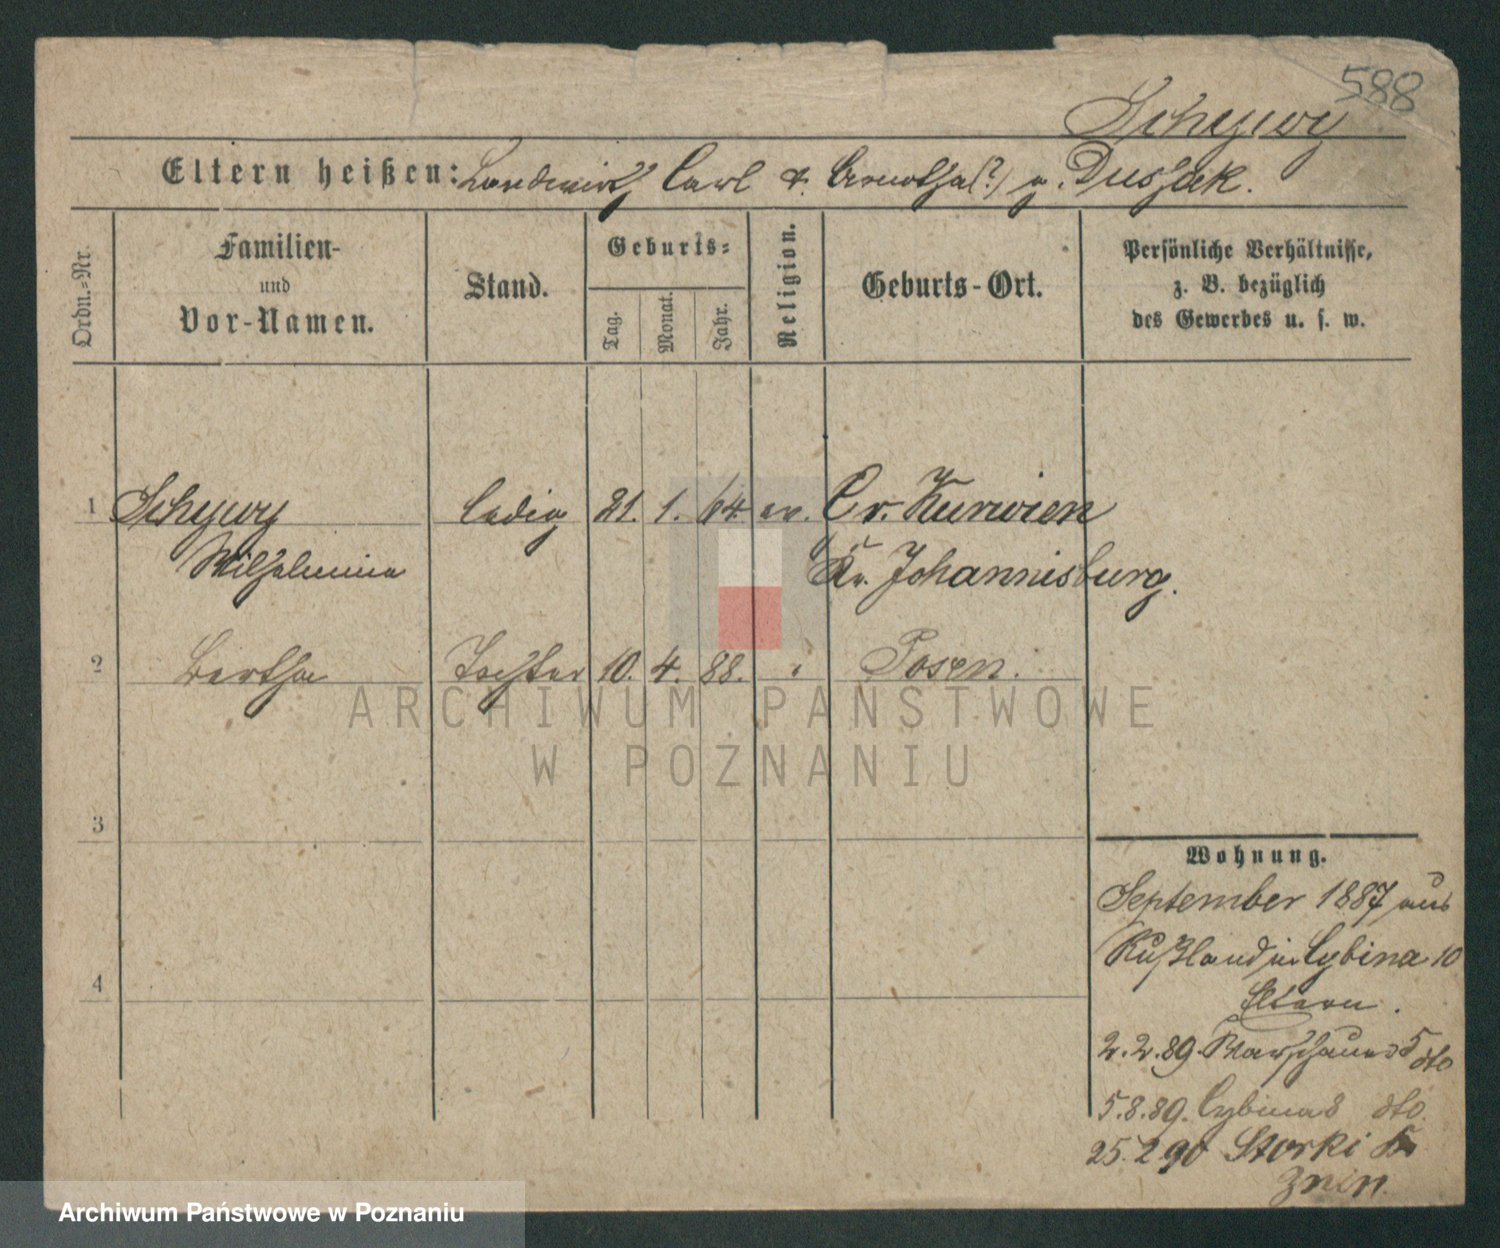 588
Schywy
Eltern heißen: Landwirth Carl & (?) g. Dusjak.
Ordn.-Nr.
Familien-
und
Vor-Namen.
Stand.
Geburts-
Tag.
Monat.
Jahr.
Religion.
Geburts-Ort.
Persönliche Verhältnisse,
z. B. bezüglich
des Gewerbes u. s. w.
1 Schywy ledig 21. 1. 64 ev. Cr. Kurwien
Wilhelmine Kr. Johannisburg.
2 Bertha Tochter 10. 4. 88. " Posen.
ARCHIWUM PAŃSTWOWE
W POZNANIU
3
4
Wohnung.
September 1887 aus
Rußland in Cybina 10
Eltern.
2.2.89. 5 dto
5.8.89. Cybina 8 dto.
25.2.90 Storki Kr
Znin.
Archiwum Państwowe w Poznaniu